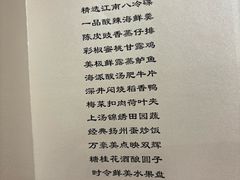 精选江南八冷碟
一品酸辣海鲜羹
陈皮豉香蒸仔排
彩椒蜜桃甘露鸡
美极鲜露蒸鲈鱼
海派酸汤肥牛片
深井闷烧稻香鸭
梅菜扣肉荷叶夹
上汤锦绣田园蔬
经典扬州蛋炒饭
万豪美点映双辉
糖桂花酒酿圆子
时令鲜美水果盘